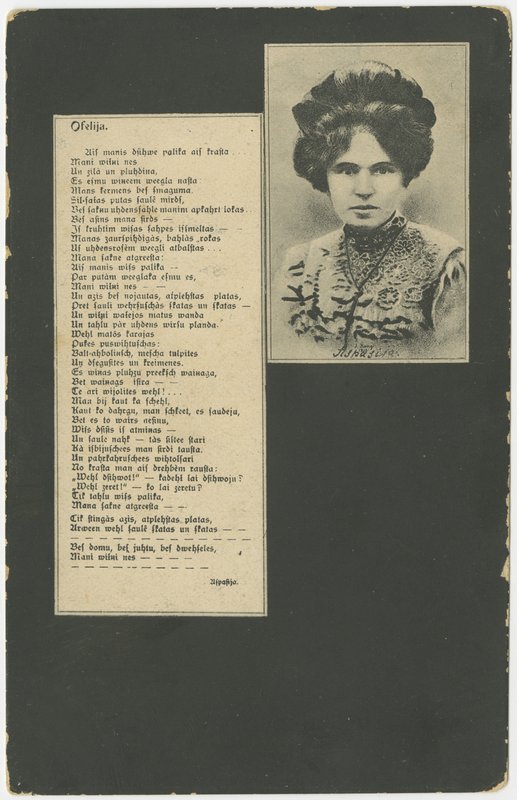 Ofelija.
Ais manis dsihwe palika ais krasta . . .
Mani wilni nes
Un zilà un pluhdina,
Es esmu wineem weegla nasta
Mans kermens bes smaguma.
Sil-salas putas saulê mirds,
Bes saknu uhdenssahle manim apkahrt lokas . .
Bes asins mana sirds —
Is kruhtim wisas sahpes issmeltas — —
Manas zaurspihdigàs, bahlàs rokas
Us uhdensrosêm weegli atbalstas . . .
Mana sakne atgreesta:
Ais manis wiss palika —
Par putàm weeglaka esmu es,
Mani wilni nes — —
Un azis bes nojautas, atplehstas platas,
Pret sauli wehrsuschàs skatas un skatas —
Un wilni walejos matus wanda
Un tahlu pàr uhdens wirsu planda.
Wehl matôs karajas
Pukes puswihtuschas:
Balt-ahbolinsch, mescha tulpites
Un dsegusites un kreimenes.
Es winas pluhzu preeksch wainaga,
Bet wainags istira — —
Te ari wijolites wehl! . . .
Man bij kaut ka schehl,
Kaut ko dahrgu, man schkeet, es saudeju,
Bet es to wairs nesinu,
Wiss dsisis is atminas —
Un saule nahk — tàs siltee stari
Kà isbijuschees man sirdi tausta.
Un pahrkahruschees wihtolsari
No krasta man ais drehbêm rausta:
„Wehl dsihwot!“ — kadehl lai dsihwoju?
„Wehl zeret!“ — ko lai zeretu?
Tik tahlu wiss palika,
Mana sakne atgreesta — —
Tik stingàs azis, atplehstas platas,
Arween wehl saulê skatas un skatas — —
Bes domu, bes juhtu, bes dwehseles,
Mani wilni nes — — — —
Aspasija.